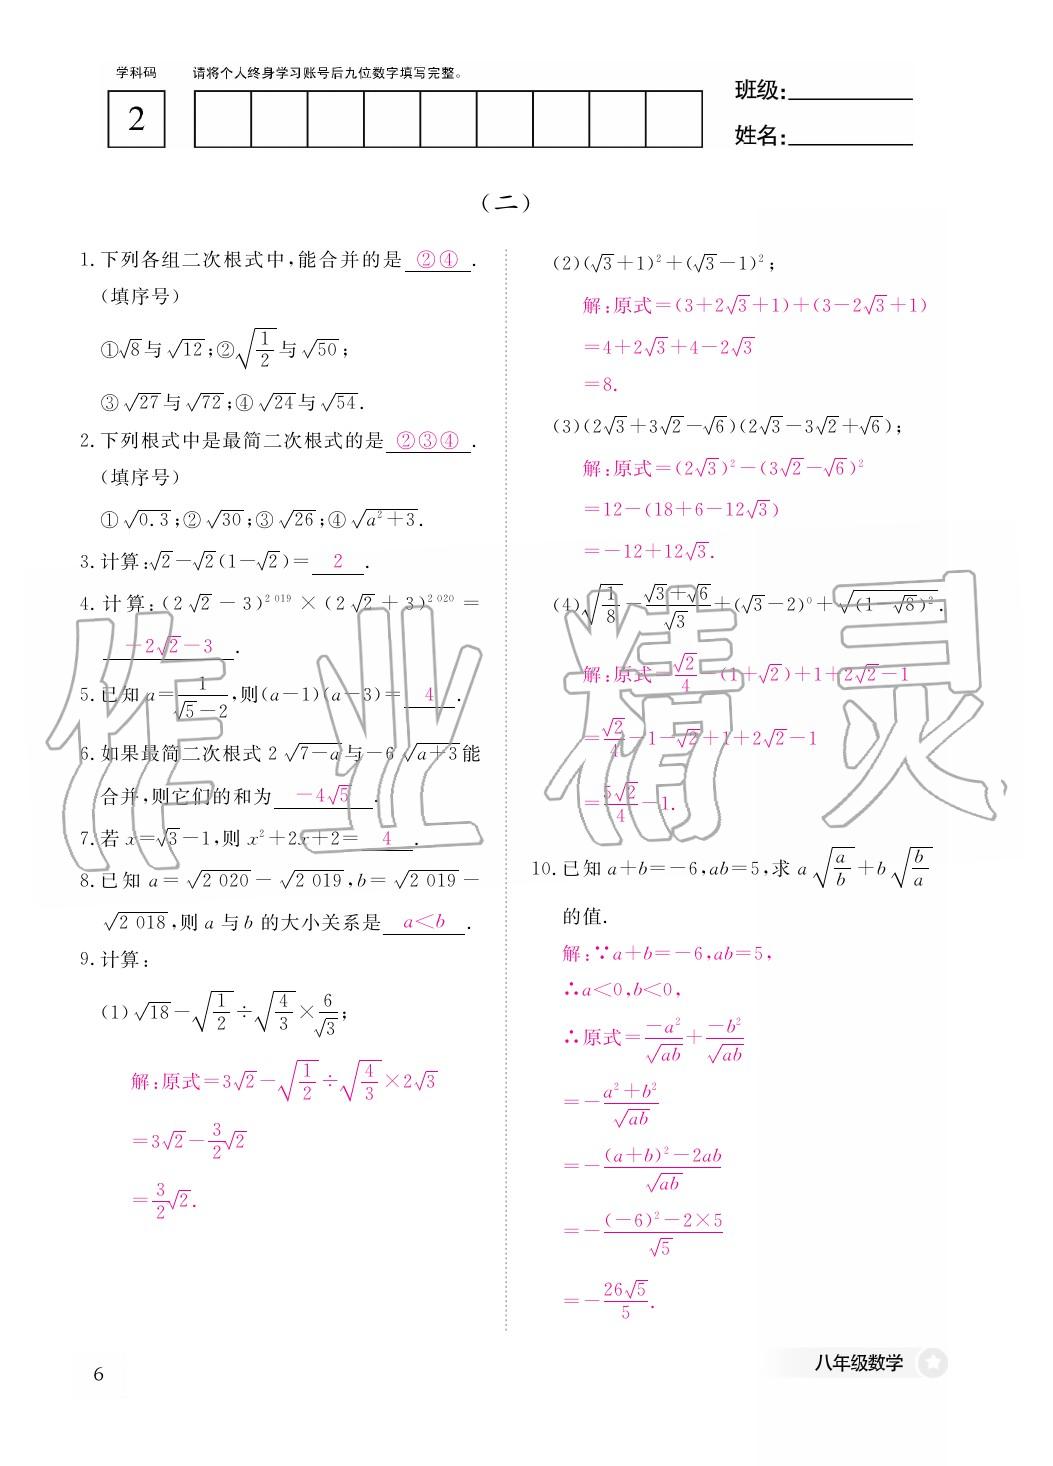 学科码 请将个人终身学习账号后九位数字填写完整。
2
班级:
姓名:
(二)
1. 下列各组二次根式中,能合并的是 ②④ .
(填序号)
①√8与√12;②√(1/2)与√50;
③√27与√72;④√24与√54.
2. 下列根式中是最简二次根式的是 ②③④ .
(填序号)
①√0.3;②√30;③√26;④√(a²+3).
3. 计算:√2-√2(1-√2)= 2 .
4. 计算:(2√2-3)²⁰¹⁹×(2√2+3)²⁰²⁰=
-2√2-3 .
5. 已知 a=1/(√5-2),则(a-1)(a-3)= 4 .
6. 如果最简二次根式 2√(7-a)与-6√(a+3)能
合并,则它们的和为 -4√5 .
7. 若 x=√3-1,则 x²+2x+2= 4 .
8. 已知 a=√2 020-√2 019,b=√2 019-
√2 018,则 a 与 b 的大小关系是 a<b .
9. 计算:
(1)√18-√(1/2)÷√(4/3)×6/√3;
解:原式=3√2-√(1/2)÷√(4/3)×2√3
=3√2-(3/2)√2
=(3/2)√2.
(2)(√3+1)²+(√3-1)²;
解:原式=(3+2√3+1)+(3-2√3+1)
=4+2√3+4-2√3
=8.
(3)(2√3+3√2-√6)(2√3-3√2+√6);
解:原式=(2√3)²-(3√2-√6)²
=12-(18+6-12√3)
=-12+12√3.
(4)√(1/8)-(√3+√6)/√3+(√3-2)⁰+√((1-√8)²).
解:原式=√2/4-(1+√2)+1+2√2-1
=√2/4-1-√2+1+2√2-1
=5√2/4-1.
10. 已知 a+b=-6,ab=5,求 a√(a/b)+b√(b/a)
的值.
解:∵a+b=-6,ab=5,
∴a<0,b<0,
∴原式=-a²/√ab+-b²/√ab
=-(a²+b²)/√ab
=-((a+b)²-2ab)/√ab
=-((-6)²-2×5)/√5
=-26√5/5.
6
八年级数学
作业精灵